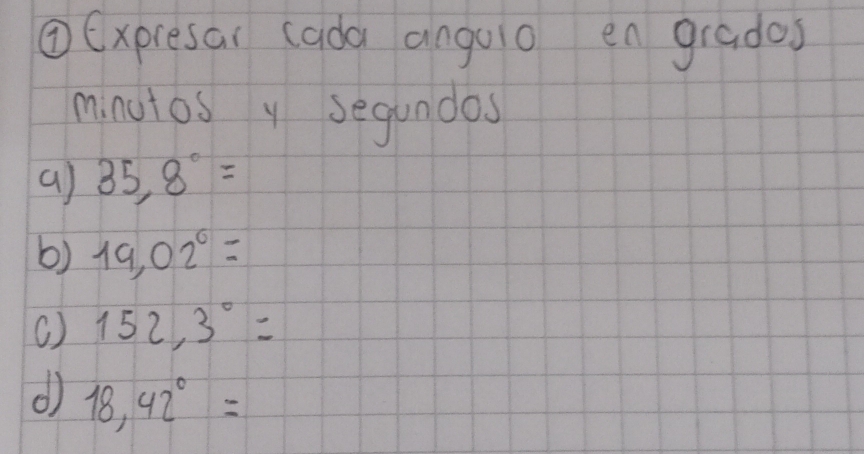 ① Expresar cada angulo en grados
minutos y segundos
a) 35,8° =
b) 19,02° =
c) 152,3° =
d) 18,42° =